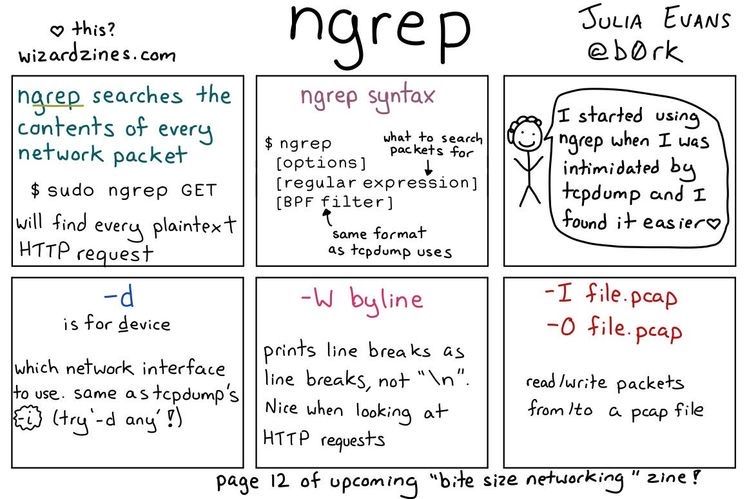 ♡ this?
wizardzines.com
ngrep
JULIA EVANS
@b0rk
ngrep searches the
contents of every
network packet
$ sudo ngrep GET
will find every plaintext
HTTP request
ngrep syntax
$ ngrep
[options]
[regular expression]
[BPF filter]
what to search
packets for
same format
as tcpdump uses
I started using
ngrep when I was
intimidated by
tcpdump and I
found it easier♡
-d
is for device
which network interface
to use. same as tcpdump's
-i (try '-d any'!)
-W byline
prints line breaks as
line breaks, not "\n".
Nice when looking at
HTTP requests
-I file.pcap
-O file.pcap
read/write packets
from/to a pcap file
page 12 of upcoming "bite size networking" zine!